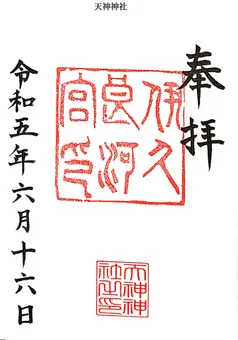 天神神社
奉拝
伊久
良河
宮印
天神神
社之印
令和五年六月十六日